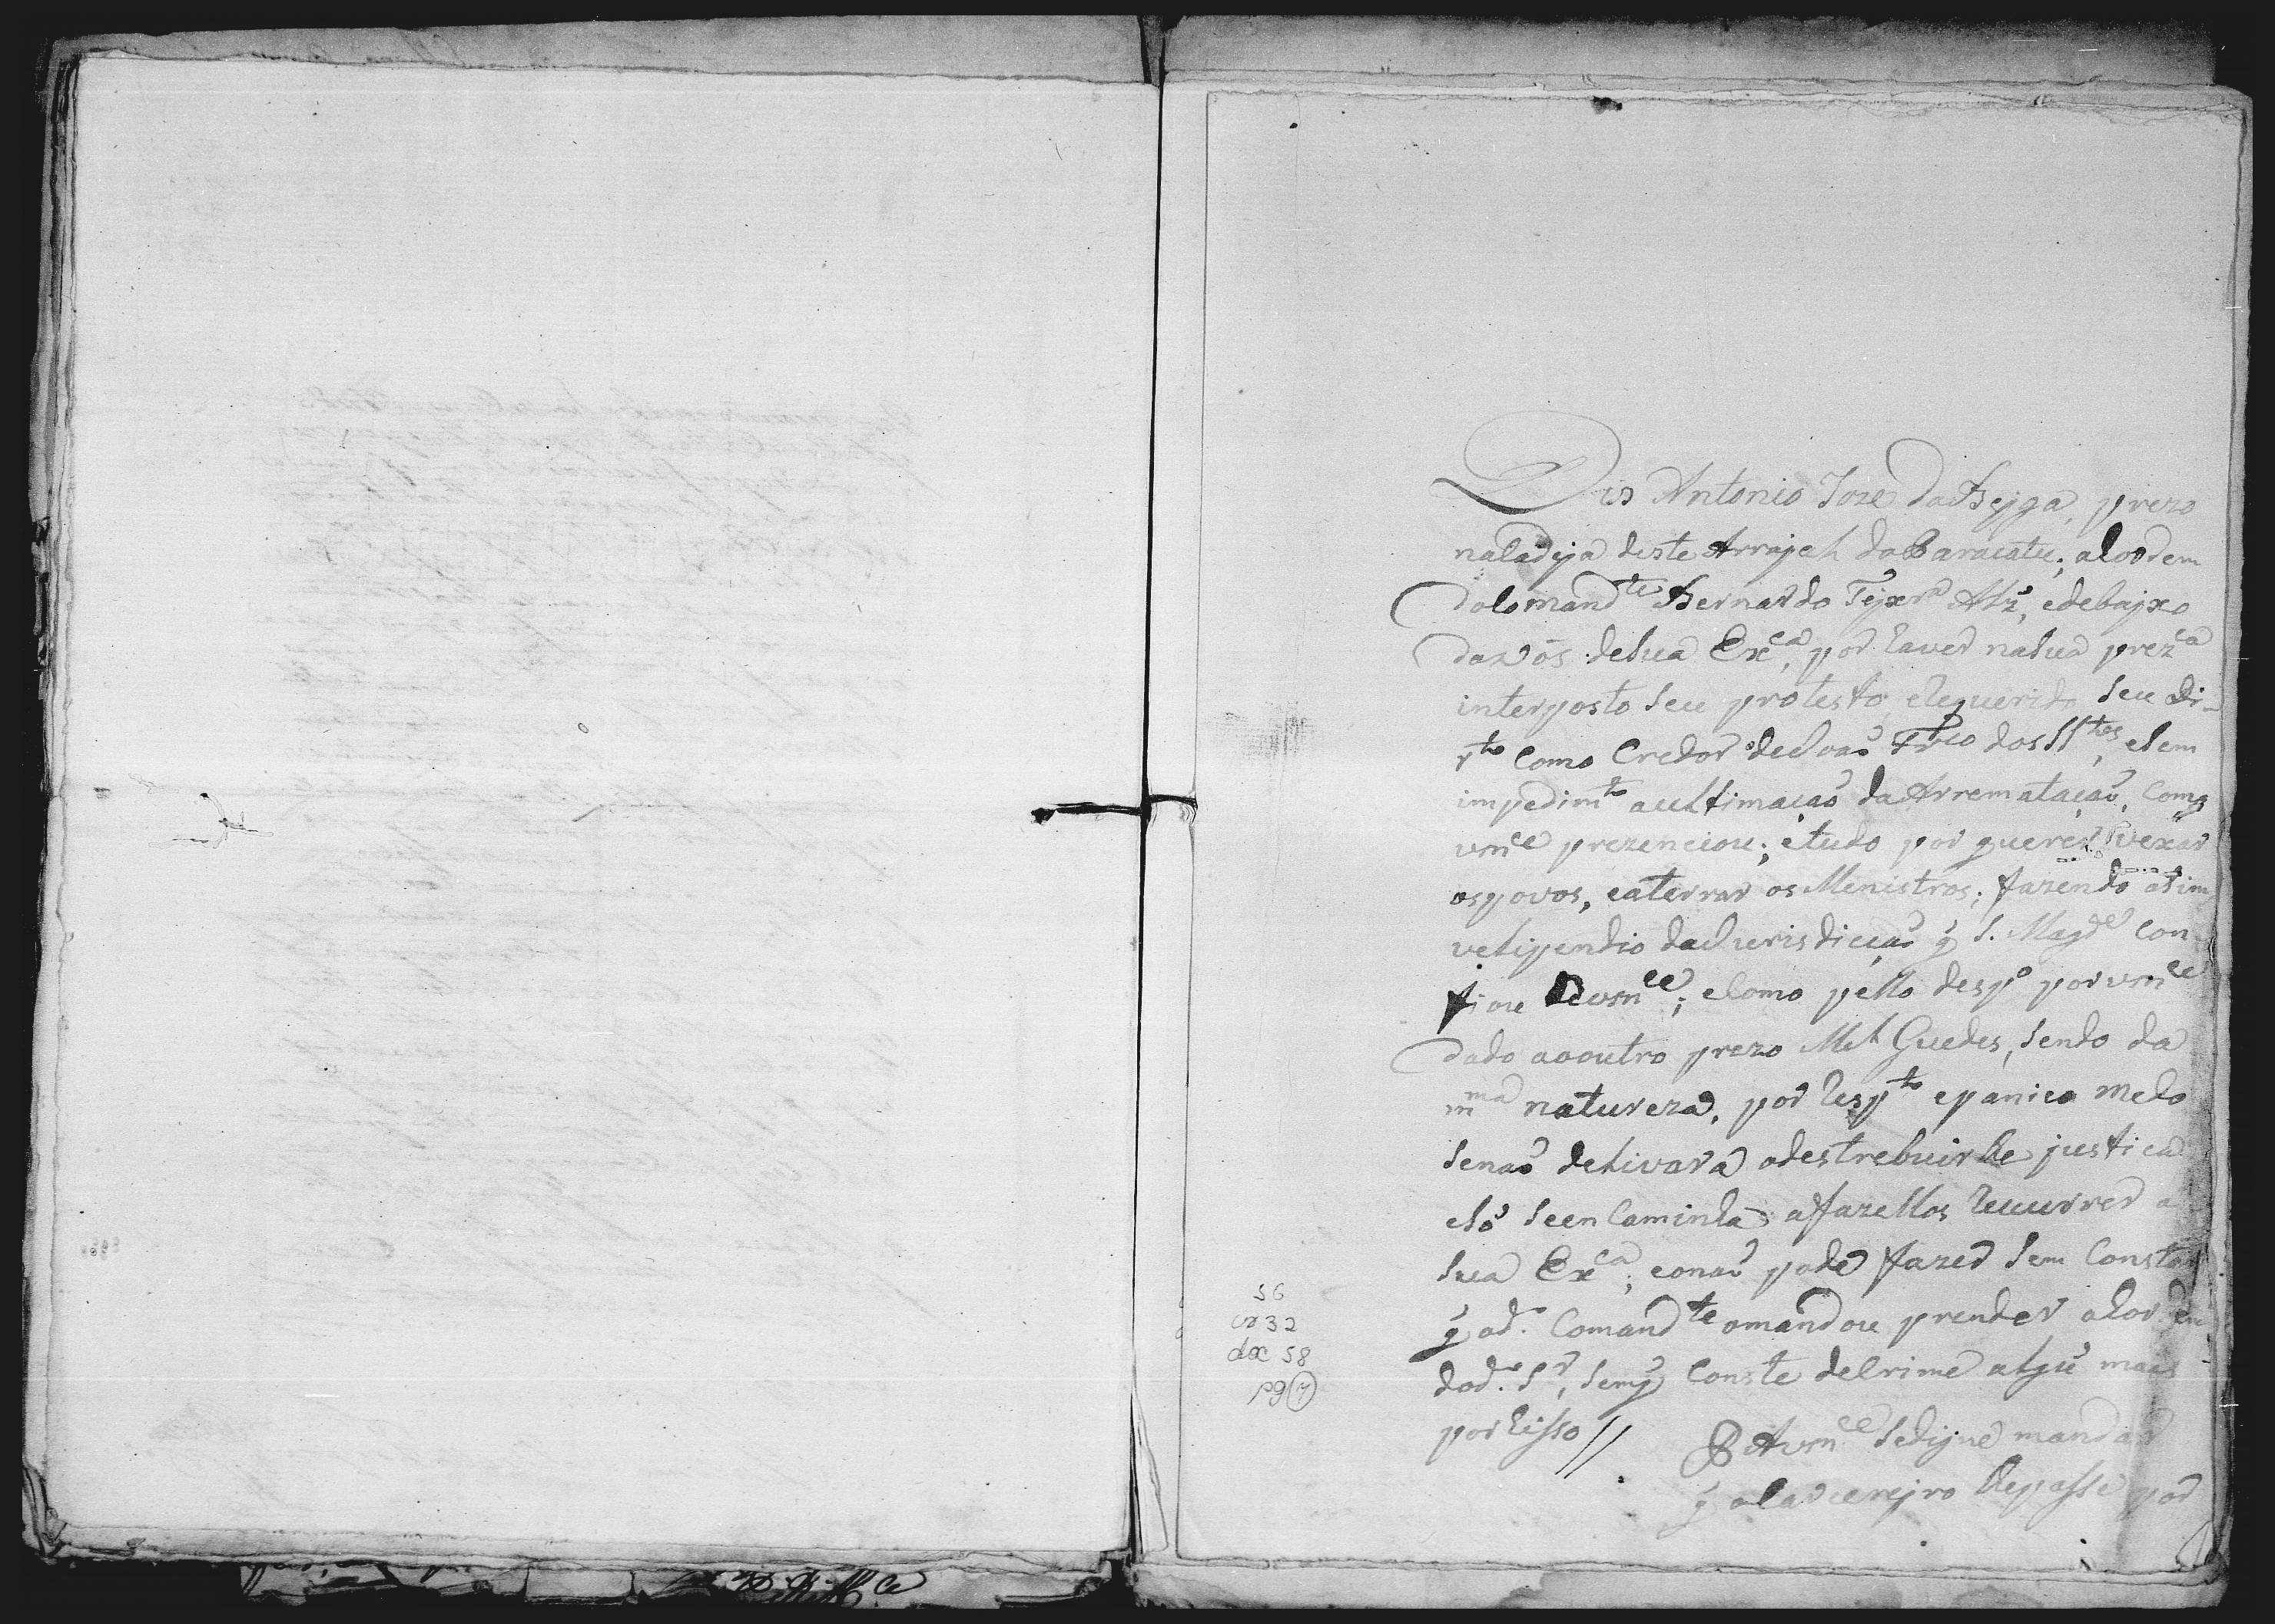 Dis Antonio Joze da Veyga, prezo
nacadeya deste Arrayal do Paracatu, aLoordem
doComand.te Bernardo Teyxr.a Alz', edebayxo
da vós deSua Ex.ca, por haver naSua prez.ca
interposto Seu protesto, eRequerido Seu di-
r.to Como Credor deJoaõ Fr.co dos SS.tos, eSem
impedim.to aultimaçaõ da Arremataçaõ, Como
vm.ce prezenciou; etudo por querer vexar
ospovos, eaterrar os Menistros, fazendo asim
velipendio daJurisdiçaõ q̃ S. Mag.de Con-
fiou de vm.ce; eComo pello desp.o por vm.ce
dado aooutro prezo M.el Guedes, Sendo da
m.ma natureza, por Resp.to epanico medo
Senaõ deLivará adestrebuirlhe justiça
eSó Seencaminha afazellos Recurrer a
Sua Ex.ca; enaõ pode fazer Sem Constar
q̃ od.o Comand.te omandou prender aLordem
dod.o S.r, Semq̃ Conste deCrime algũ mais
por hisso //
P. Avm.ce Sedigne mandar
q̃ oCarcereyro lhepasse por
56
cx 32
doc 58
pg 7